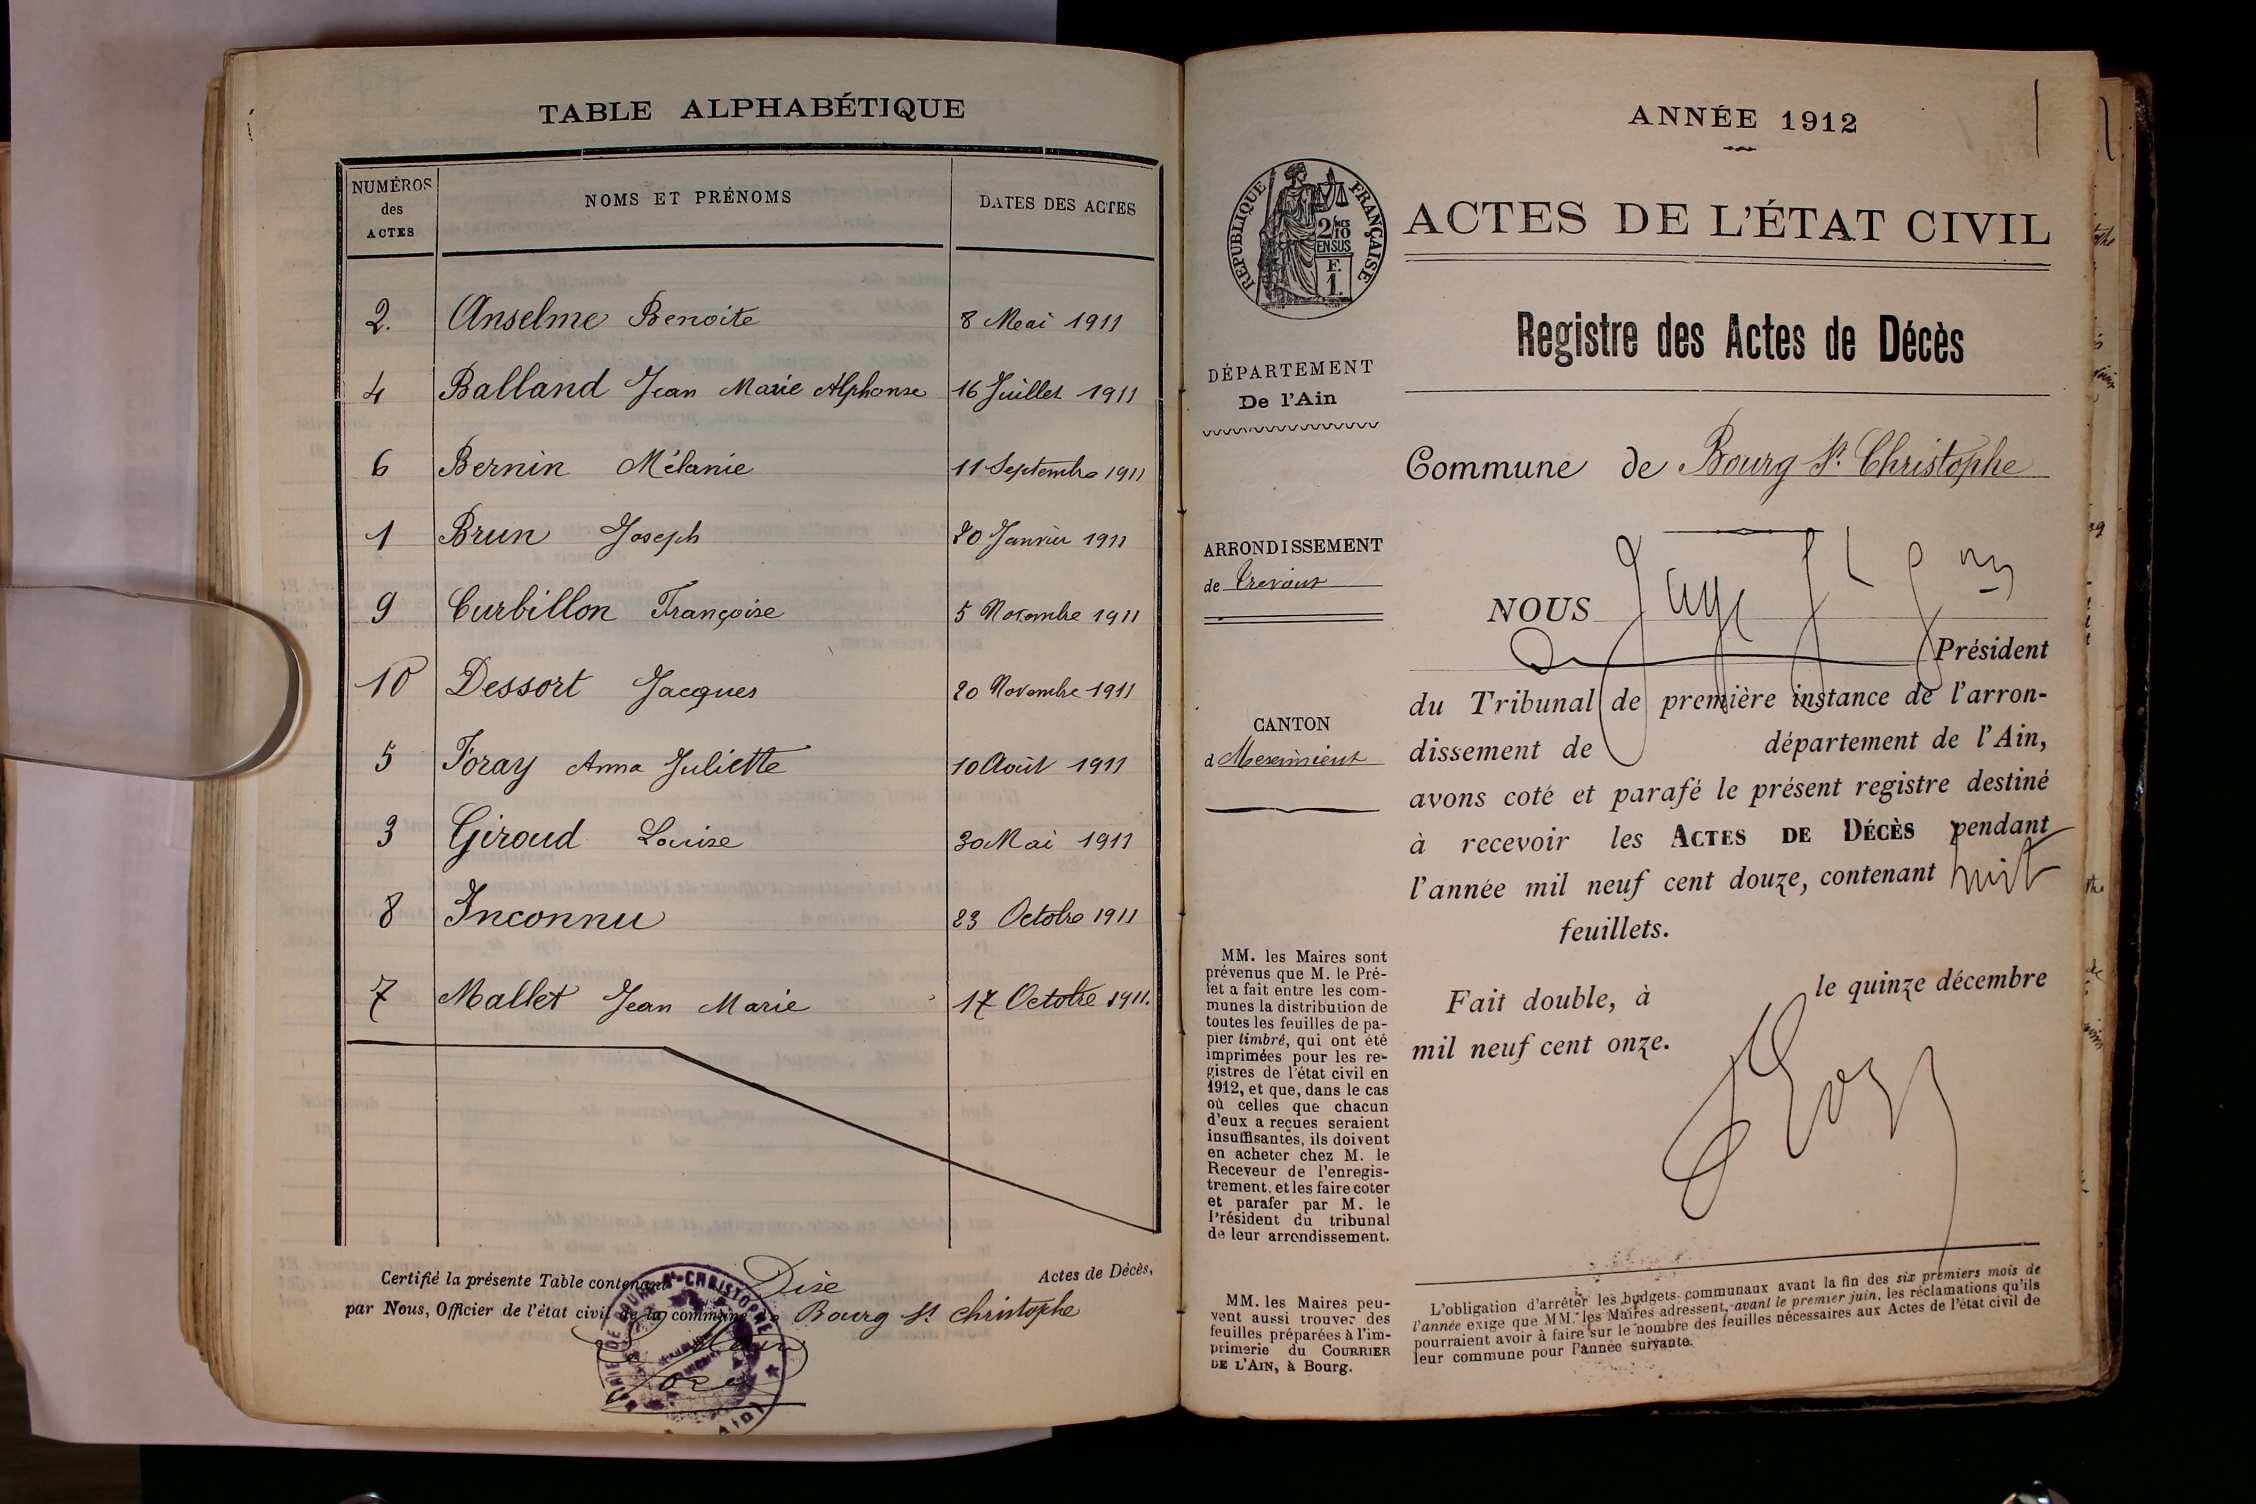 TABLE ALPHABÉTIQUE
NUMÉROS des ACTES
NOMS ET PRÉNOMS
DATES DES ACTES
2. Anselme Benoite 8 Mai 1911
4 Balland Jean Marie Alphonse 16 Juillet 1911
6 Bernin Mélanie 11 Septembre 1911
1 Brun Joseph 20 Janvier 1911
9 Curbillon Françoise 5 Novembre 1911
10 Dessort Jacques 20 Novembre 1911
5 Foray Anna Juliette 10 Août 1911
3 Giroud Louise 30 Mai 1911
8 Inconnu 23 Octobre 1911
7 Mallet Jean Marie 17 Octobre 1911.
Certifié la présente Table contenant Dix Actes de Décès,
par Nous, Officier de l'état civil de la commune de Bourg St Christophe
ANNÉE 1912
RÉPUBLIQUE FRANÇAISE
2/10 EN SUS
F. 1.
ACTES DE L'ÉTAT CIVIL
Registre des Actes de Décès
DÉPARTEMENT
De l'Ain
Commune de Bourg St. Christophe
ARRONDISSEMENT
de Trévoux
CANTON
d Meximieux
NOUS
Président
du Tribunal de première instance de l'arron-
dissement de département de l'Ain,
avons coté et parafé le présent registre destiné
à recevoir les ACTES DE DÉCÈS pendant
l'année mil neuf cent douze, contenant huit
feuillets.
Fait double, à le quinze décembre
mil neuf cent onze.
MM. les Maires sont
prévenus que M. le Pré-
fet a fait entre les com-
munes la distribution de
toutes les feuilles de pa-
pier timbré, qui ont été
imprimées pour les re-
gistres de l'état civil en
1912, et que, dans le cas
où celles que chacun
d'eux a reçues seraient
insuffisantes, ils doivent
en acheter chez M. le
Receveur de l'enregis-
trement, et les faire coter
et parafer par M. le
Président du tribunal
de leur arrondissement.
MM. les Maires peu-
vent aussi trouver des
feuilles préparées à l'im-
primerie du COURRIER
DE L'AIN, à Bourg.
L'obligation d'arrêter les budgets communaux avant la fin des six premiers mois de
l'année exige que MM. les Maires adressent, avant le premier juin, les réclamations qu'ils
pourraient avoir à faire sur le nombre des feuilles nécessaires aux Actes de l'état civil de
leur commune pour l'année suivante.